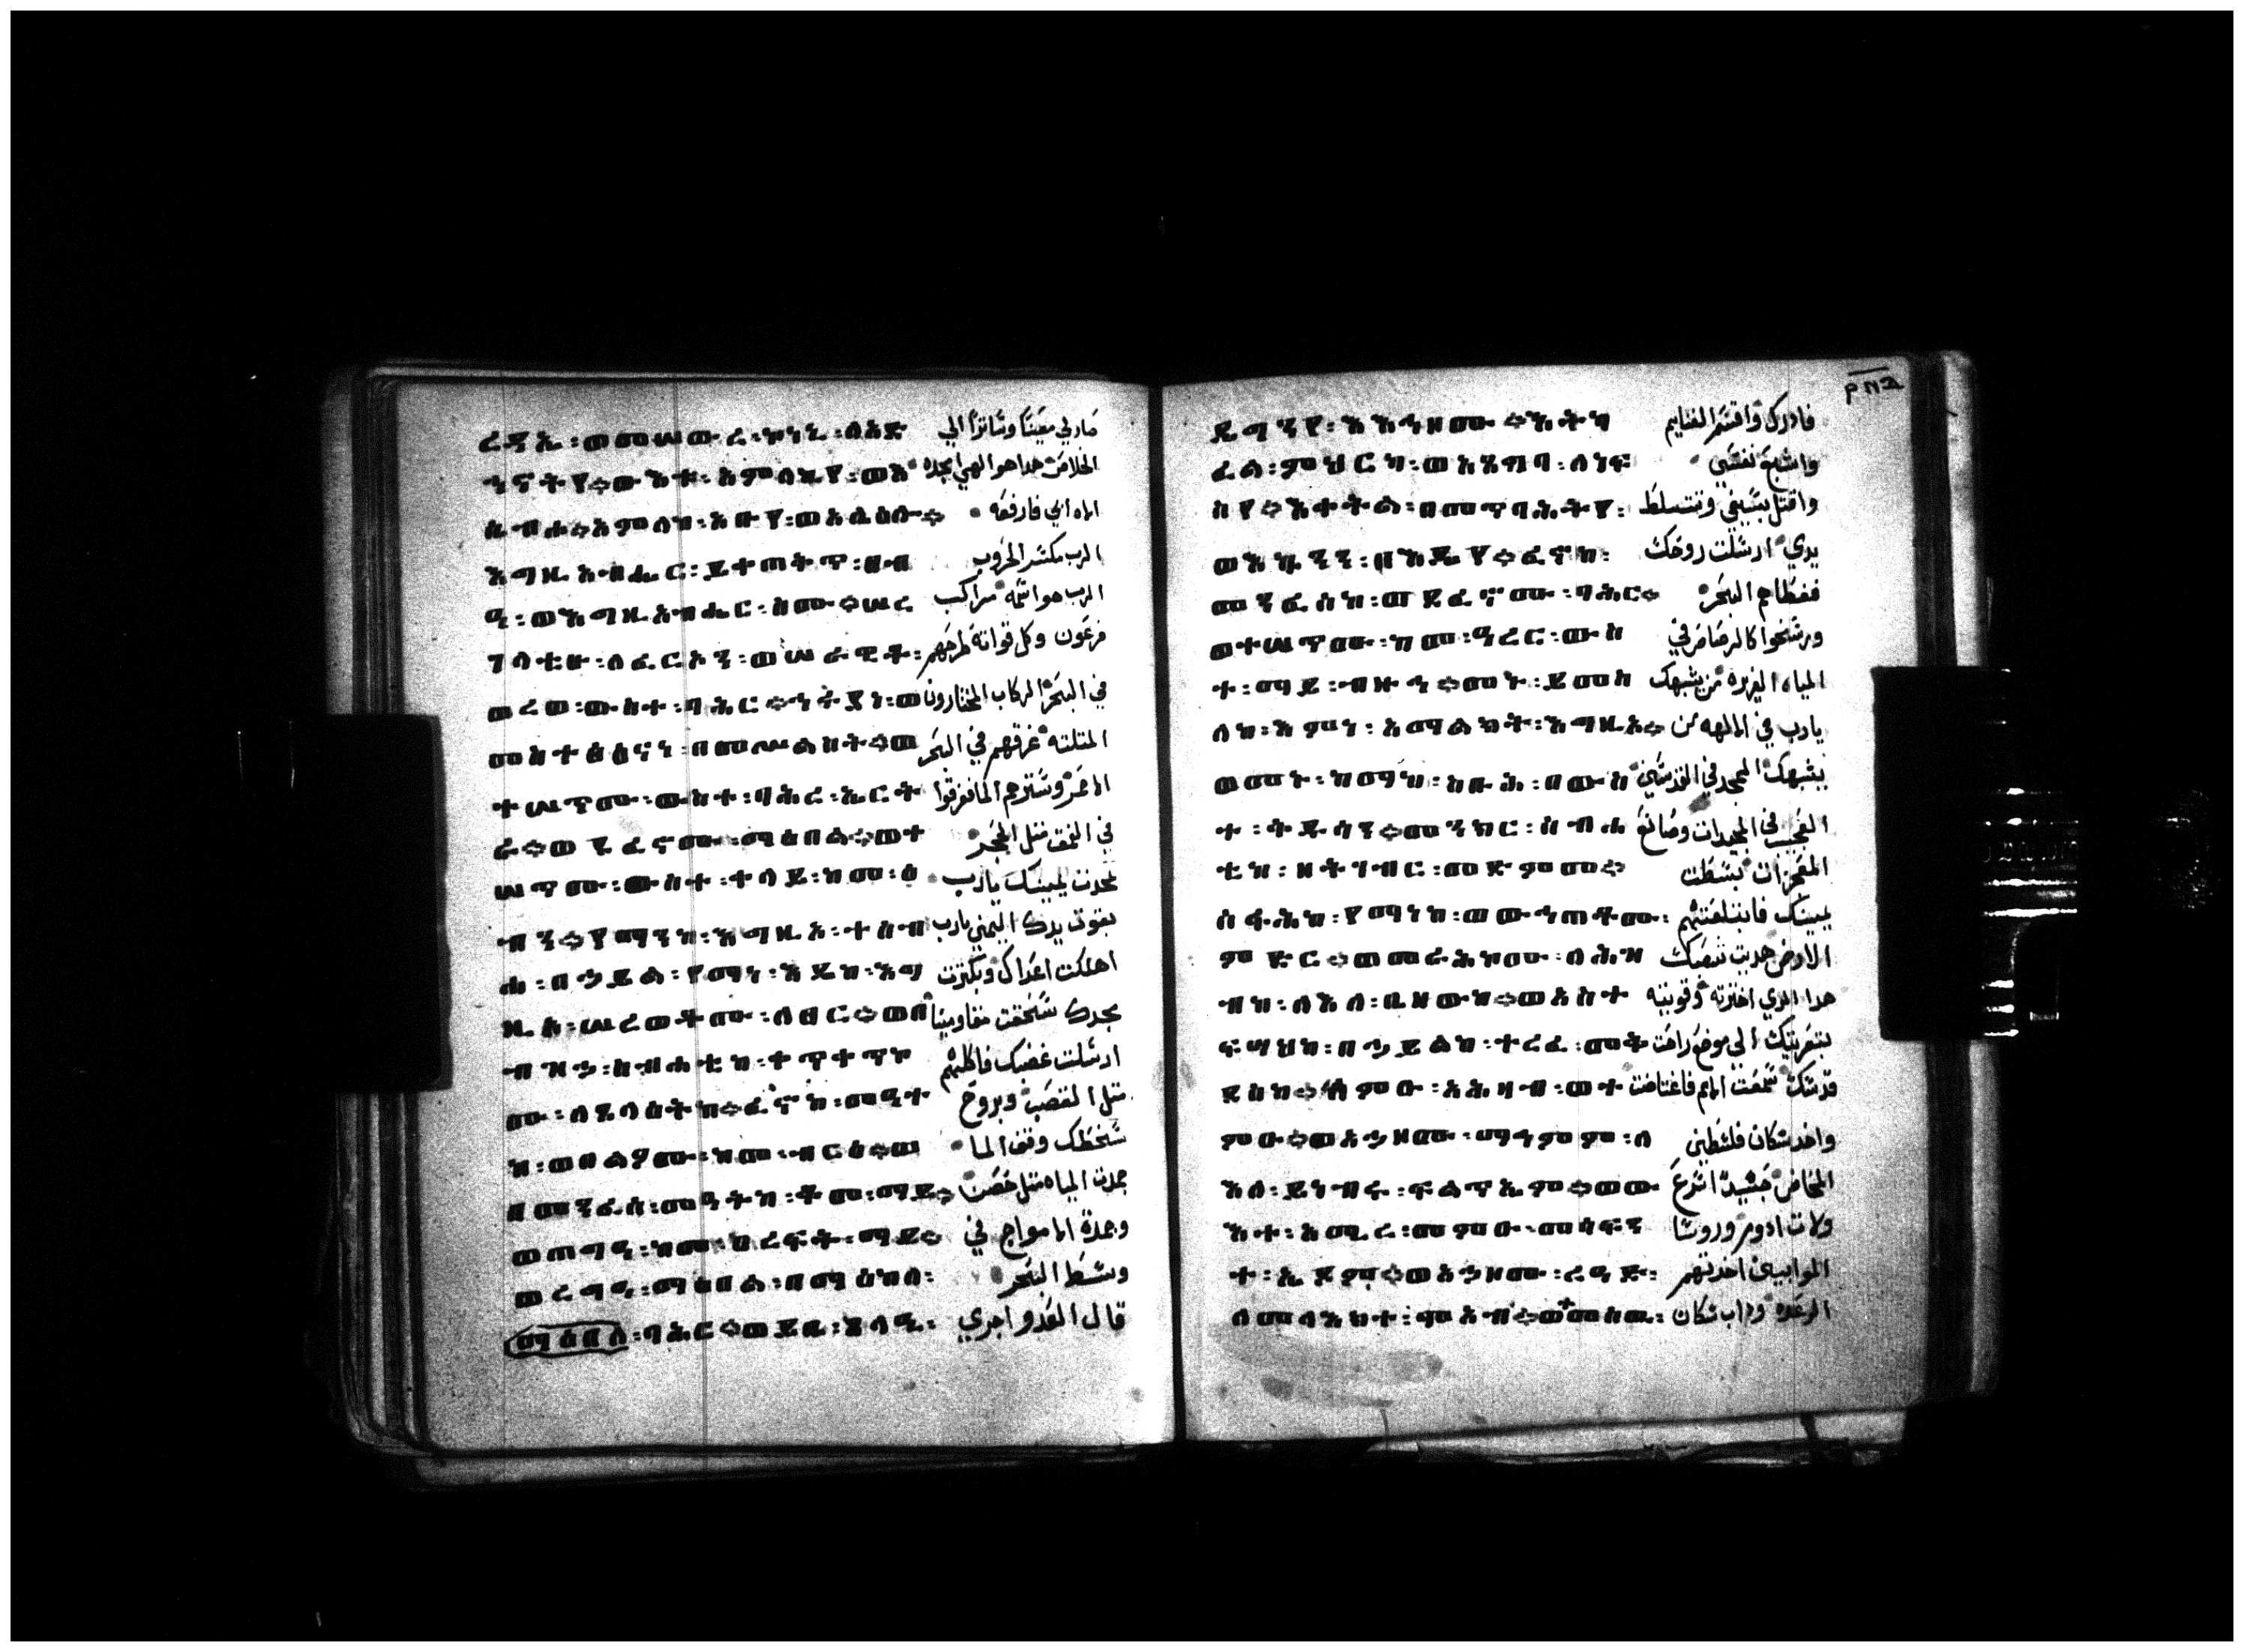 ረድኤ፡ ወመሠወረ፡ ኮነኒ፡ ለአድ صار لي معينا وساترا الي
ኅኖትየ። ውእቱ፡ አምላኪየ፡ ወእ الخلاص هدا هو الهي امجده
ሴብሖ። አምላኩ፡ አቡየ፡ ወአሌዕሎ። اله ابي فارفعه
እግዚአብሔር፡ ይቀጠቅጥ፡ ፀብ الرب مكسر الحروب
አ፡ ወእግዚአብሔር፡ ስሙ። ሠረ الرب هو اسمه مراكب
ገላቲሁ፡ ለፈርዖን፡ ወሠራዊቶ፡ فرعون وكل قواته طرحهم
ወረወ፡ ውስተ፡ ባሕር። ኅሩያነ፡ መ في البحر الركاب المختارون
መስተፅዕናነ፡ በመሥልስት። ወ المتلته غرقهم في البحر
ተሠጥሙ፡ ውስተ፡ ባሕረ፡ ኤርት الاحمر وسترهم الما فغرقوا
ራ። ወደፈኖሙ፡ ማዕበል። ወተ في العمق متل الحجر
ሠጥሙ፡ ውስተ፡ ቀላይ፡ ከመ፡ ዕ تمجدت يمينك يا رب
ብን። የማንከ፡ እግዚኦ፡ ተሰብ بقوت يدك اليمني يارب
ሐ፡ በኃይል፡ የማነ፡ እዴከ፡ እግ اهلكت اعداك وبكترت
ዚኦ፡ ሠረወቶሙ፡ ለፀር። ወበ مجدك سحقت مقاومينا
ብዝኃ፡ ስብሐቲከ፡ ቀጥቀጥኮ ارسلت غضبك فاكلهم
ሙ፡ ለጸላዕትከ። ፈኖከ፡ መዓተ متل القصب وبروح
ከ፡ ወበልዖሙ፡ ከመ፡ ብርዕ። ወ سخطك وقف الما
በመንፈሰ፡ መዓትከ፡ ቆመ፡ ማይ። جمدت المياه متل حصن
ወጠግአ፡ ከመ፡ አረፍት፡ ማይ። وجمدة الامواج في
ወረግዐ፡ ማዕበል፡ በማእከለ፡ وسط البحر
ማዕበለ፡ ባሕር። ወይቤ፡ ጸላኢ፡ قال العدو اجري
ዴግንየ፡ እእኅዞሙ። እከፍ فادرك واقسم الغنايم
ል፡ ምህርካ፡ ወአጸግባ፡ ለነፍ واشبع نفسي
ስየ። እቀትል፡ በመጥባሕትየ፡ واقتل بسيفي وتتسلط
ወእኴንን፡ በእዴየ። ፈኖከ፡ يدي ارسلت روحك
መንፈሰከ፡ ወደፈኖሙ፡ ባሕር። فغطاهم البحر
ወተሠጥሙ፡ ከመ፡ ዐረር፡ ውስ ورسخوا كالرصاص في
ተ፡ ማይ፡ ብዙኅ። መኑ፡ ይመስ المياه الغزيره من يشبهك
ለከ፡ እምነ፡ አማልክት፡ እግዚኦ። يارب في الالهه من
ወመኑ፡ ከማከ፡ ስቡሕ፡ በውስ يشبهك الممجد في القديسين
ተ፡ ቅዱሳን። መንክር፡ ስብሐ العجيب في المجيدات وصانع
ቲከ፡ ዘትገብር፡ መድምመ። المعجزات بسطت
ሰፋሕከ፡ የማነከ፡ ወውኅጠቶሙ፡ يمينك فابتلعتهم
ምድር። ወመራሕኮሙ፡ ለሕዝ الارض هديت شعبك
ብከ፡ ለእለ፡ ቤዘውከ። ወአስተ هدا الدي اخترته وقويته
ፍሣህከ፡ በኃይልከ፡ ተረፈ፡ መቅ بتعزيتك الي موضع راحت
ደስከ። ሰምዑ፡ አሕዛብ፡ ወተ قدسك سمعت الامم فاغتاضت
ምዑ። ወአኃዞሙ፡ ማኅምም፡ ለ واخد سكان فلسطين
እለ፡ ይነብሩ፡ ፍልጥኤም። ወመ المخاض حينيد اسرع
እት፡ አሜረ፡ መምዑ፡ መሳፍን ولات ادوم وروسا
ት፡ ኤዶም። ወአኃዞሙ፡ ረዓድ፡ الموابيين اخدتهم
ለመላእክተ፡ ሞአብ። ወተመስዉ፡ الرعده وداب سكان